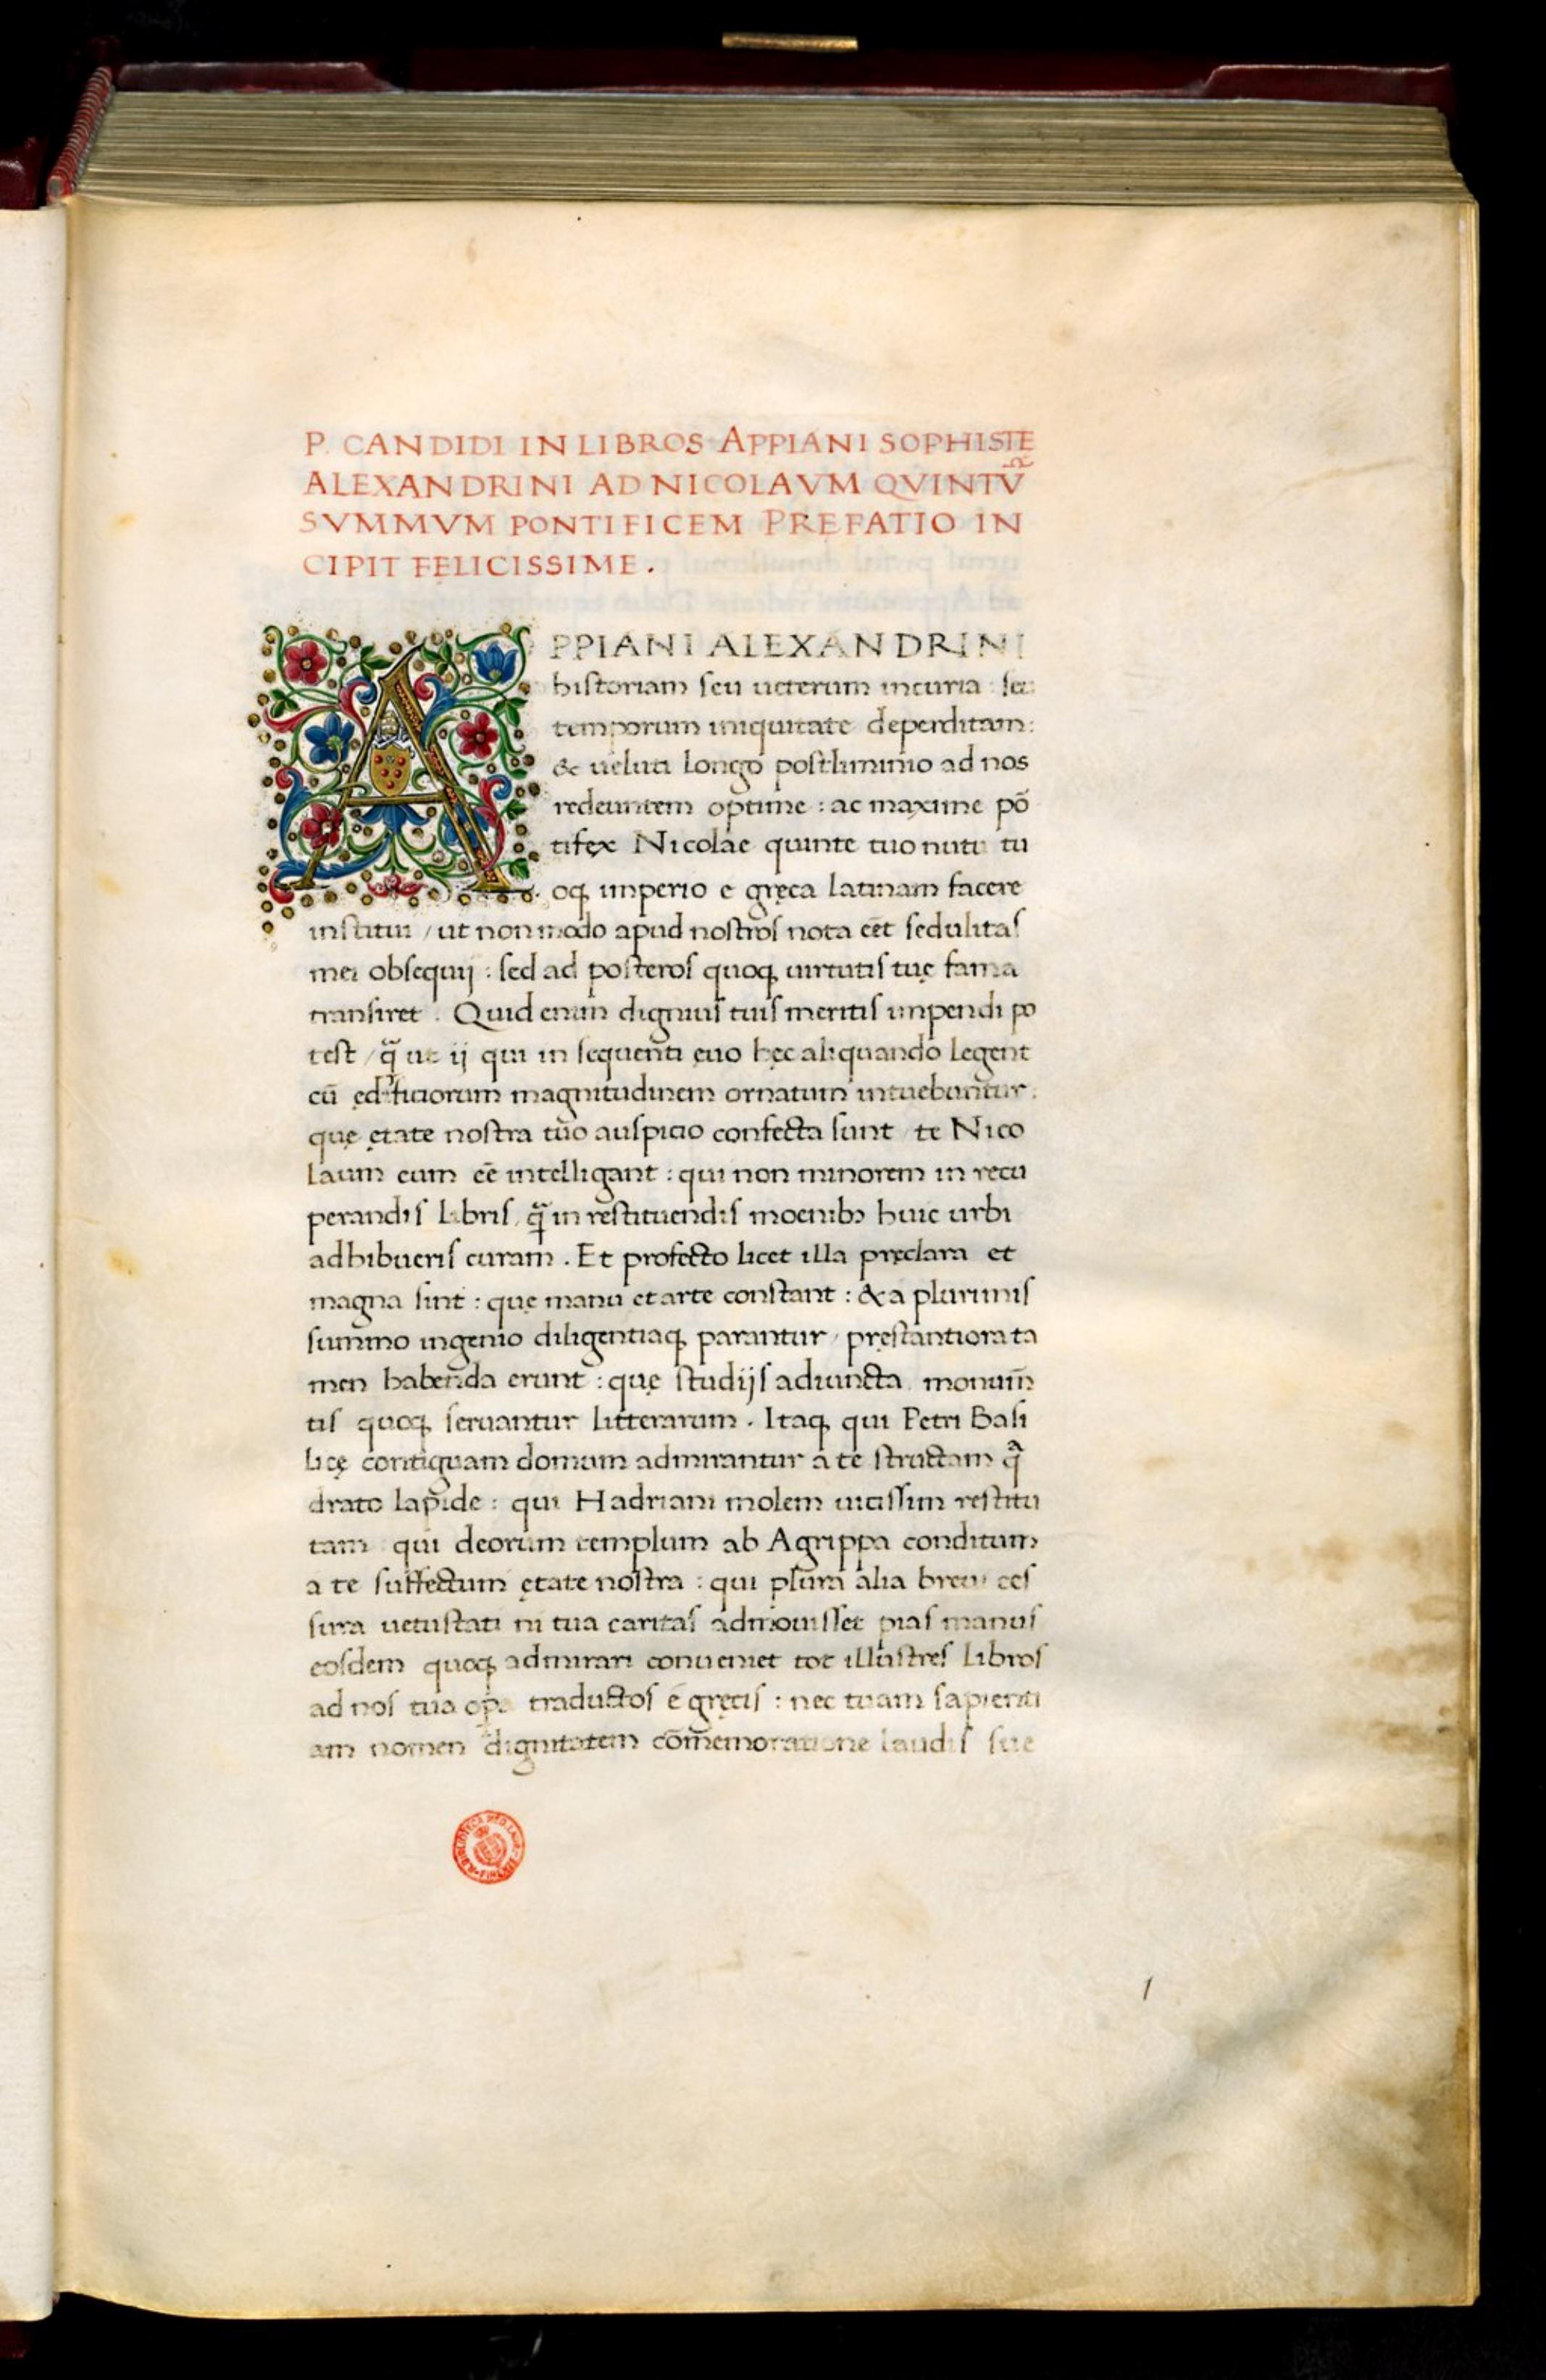 P. CANDIDI IN LIBROS APPIANI SOPHISTE
ALEXANDRINI AD NICOLAVM QVINTV̄
SVMMVM PONTIFICEM PREFATIO IN
CIPIT FELICISSIME.
APPIANI ALEXANDRINI
historiam seu ueterum incuria: seu
temporum iniquitate deperditam:
& ueluti longo postliminio ad nos
redeuntem optime: ac maxime pō
tifex Nicolae quinte tuo nutu tu
oq; imperio e gręca latinam facere
institui / ut non modo apud nostros nota eēt sedulitas
mei obsequij: sed ad posteros quoq; uirtutis tuę fama
transiret. Quid enim dignius tuis meritis impendi po
test / q̄ ut ij qui in sequenti euo hęc aliquando legent
cū ędificiorum magnitudinem ornatum intuebuntur:
quę ętate nostra tuo auspicio confecta sunt te Nico
laum eum eē intelligant: qui non minorem in recu
perandis libris, q̄ in restituendis moenibꝫ huic urbi
adhibueris curam. Et profecto licet illa pręclara et
magna sint: quę manu et arte constant: & a plurimis
summo ingenio diligentiaq; parantur / pręstantiora ta
men habenda erunt: quę studijs adiuncta monum̄
tis quoq; seruantur litterarum. Itaq; qui Petri Basi
licę contiguam domum admirantur a te structam q̄
drato lapide: qui Hadriani molem uicissim restitu
tam qui deorum templum ab Agrippa conditum
a te suffectum ętate nostra: qui plura alia breui ces
sura uetustati ni tua caritas admouisset pias manus
eosdem quoq; admirari conueniet tot illustres libros
ad nos tua opa traductos e gręcis: nec tuam sapienti
am nomen dignitatem cōmemoratione laudis sue
1